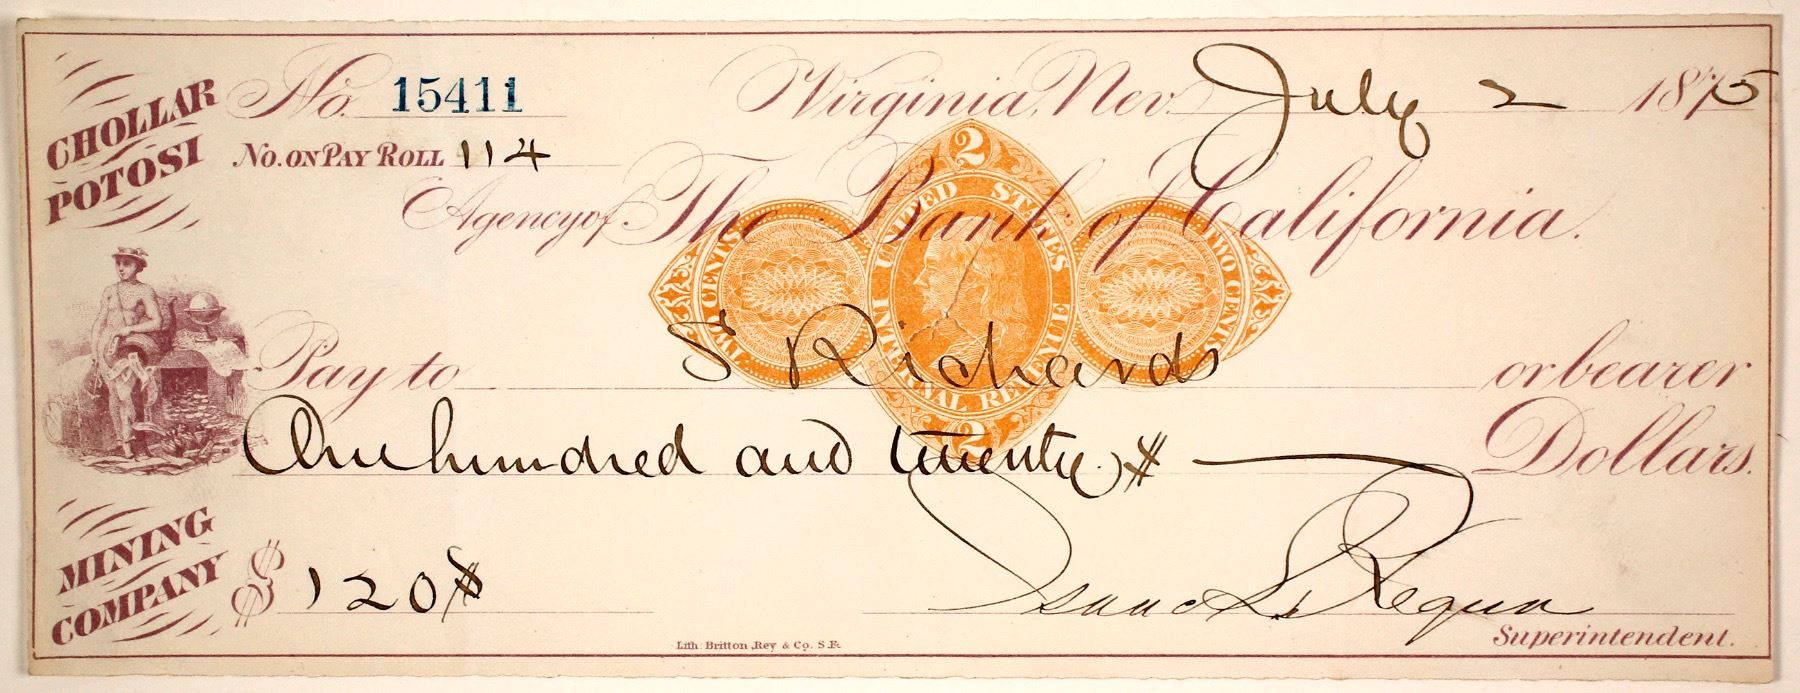 CHOLLAR
POTOSI
No. 15411
Virginia, Nev. July 2 1875
No. ON PAY ROLL 114
Agency of The Bank of California.
2
UNITED STATES
INTERNAL REVENUE
TWO CENTS
TWO CENTS
2
Pay to S Richards or bearer
One hundred and twenty $ Dollars.
MINING
COMPANY
$ 120 $
Isaac L. Requa
Superintendent.
Lith: Britton, Rey & Co. S.F.